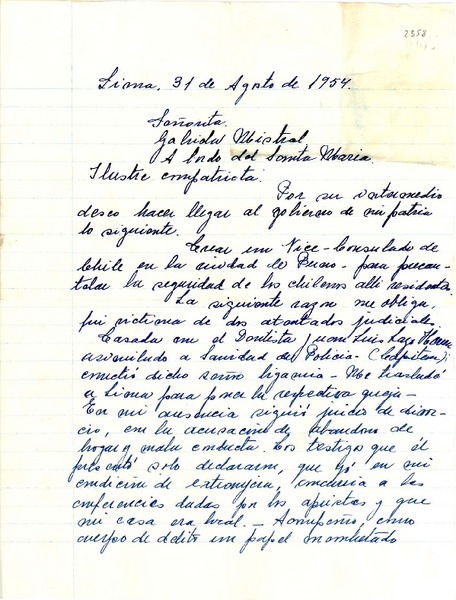 2358
Lima, 31 de Agosto de 1954.
Señorita.
Gabriela Mistral
A bordo del Santa Maria.
Ilustre compatriota.
Por su intermedio
deseo hacer llegar al gobierno de mi patria
lo siguiente.
Crear un Vice-Consulado de
Chile en la ciudad de Puno - para precau-
telar la seguridad de los chilenos alli residentes.
La siguiente razon me obliga,
fui victima de dos atentados judiciales
Casada con el Dentista Juan Luis
asimilado a Sanidad de Policia - (Capitan);
cometió dicho señor bigamia - Me trasladé
a Lima para poner la respectiva queja -
En mi ausencia siguió juicio de divor-
cio, con la acusación de abandono de
hogar y mala conducta. Los testigos que él
presentó solo declararon, que yó en mi
condicion de extranjera, concurria a las
conferencias dadas por los apristas y que
mi casa era local. - Acompaño, como
cuerpo de delito un papel membretado